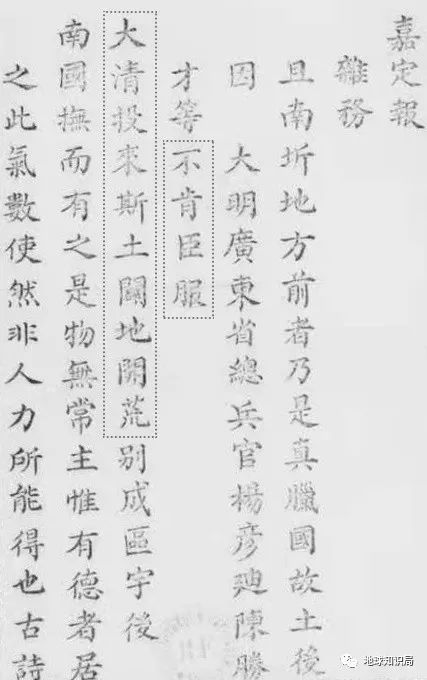 嘉定報
雜務
且南圻地方前者乃是真臘國故土後
因 大明廣東省總兵官楊彥廸陳勝
才等不肯臣服
大清投來斯土闢地開荒別成區宇後
南國撫而有之是物無常主惟有德者居
之此氣數使然非人力所能得也古詩
地球知识局